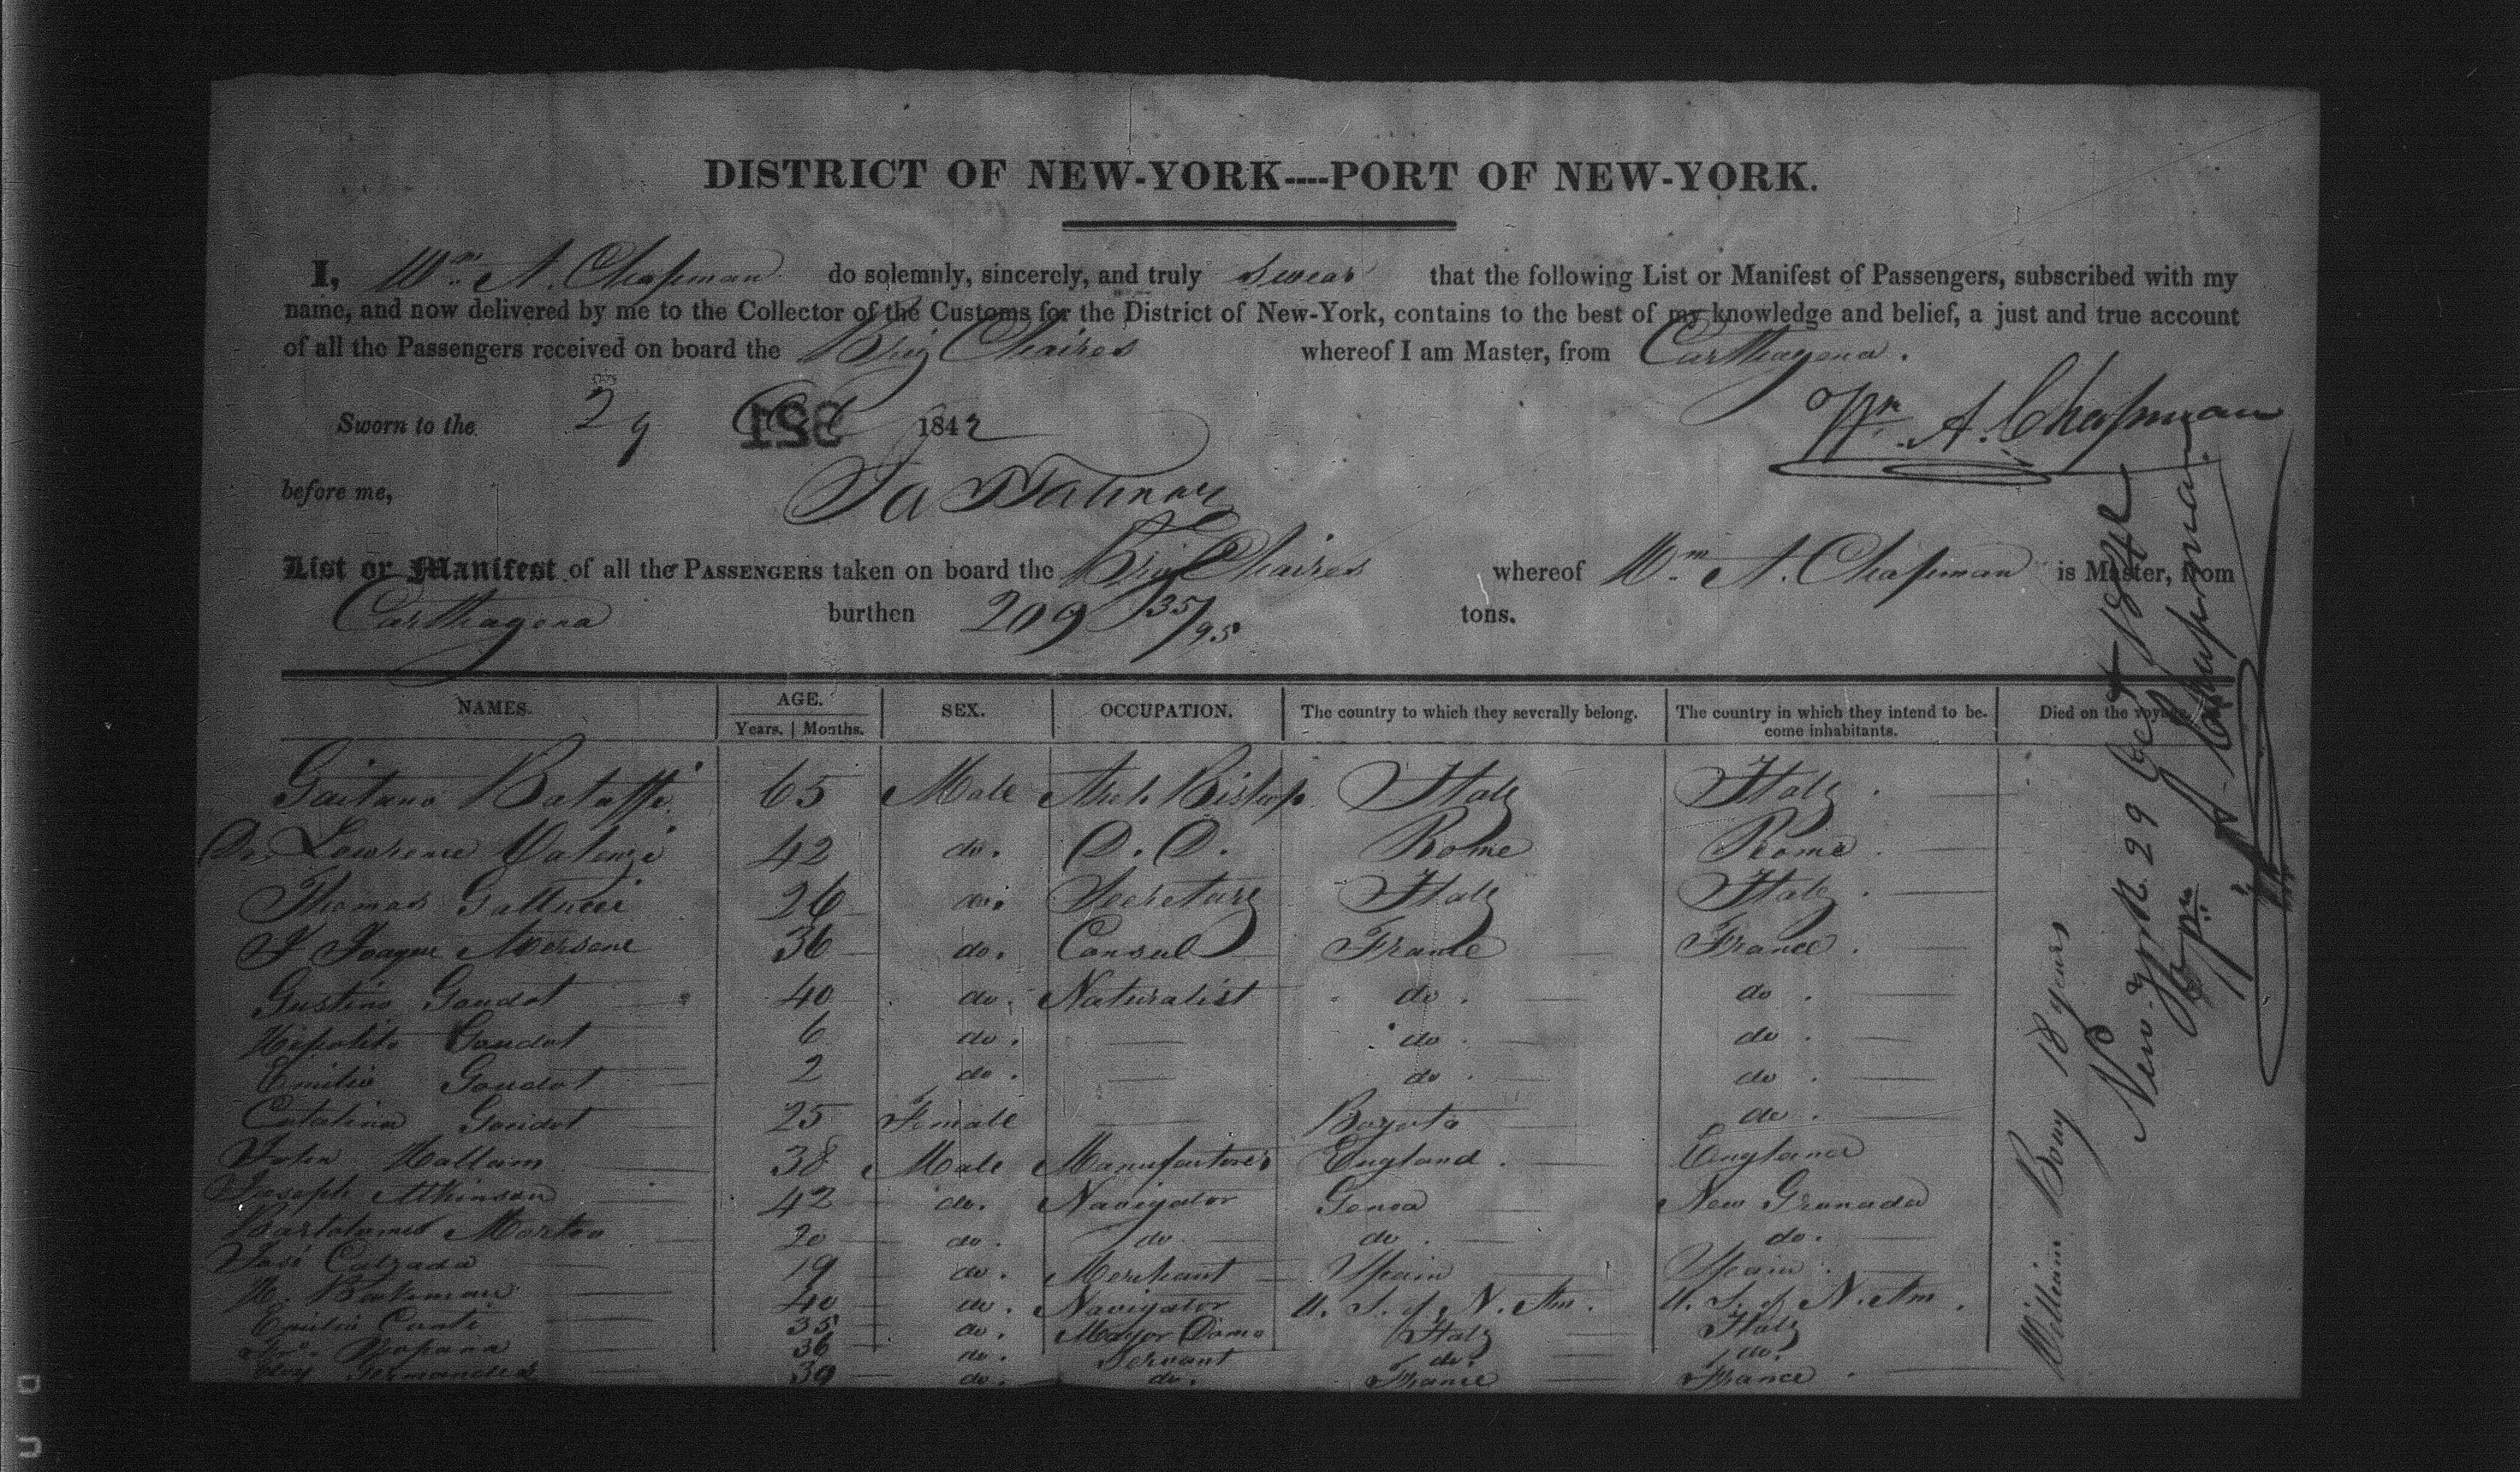 DISTRICT OF NEW-YORK----PORT OF NEW-YORK.
I, Wm. A. Chapman do solemnly, sincerely, and truly swear that the following List or Manifest of Passengers, subscribed with my
name, and now delivered by me to the Collector of the Customs for the District of New-York, contains to the best of my knowledge and belief, a just and true account
of all the Passengers received on board the Brig Chaires whereof I am Master, from Carthagena.
Sworn to the 29 Oct 1842
351
Wm. A. Chapman
before me,
List or Manifest of all the PASSENGERS taken on board the Brig Chaires whereof Wm. A. Chapman is Master, from
Carthagena burthen 209 35/95 tons.
NAMES. AGE. Years. Months. SEX. OCCUPATION. The country to which they severally belong. The country in which they intend to become inhabitants. Died on the voyage.
Gaitano 65 Male Arch. Bishop Italy Italy.
Dr. Lawrence Valenzi 42 do. D.D. Rome Rome.
Thomas Gallucci 26 do. Secretary Italy Italy.
36 do. Consul France France.
Gustino Goudot 40 do. Naturalist do. do.
Hipolito Goudot 6 do. do. do.
Emilio Goudot 2 do. do. do.
Catalina Goudot 25 Female Bogota do.
John Hallam 38 Male Manufacturer England. England
Joseph Atkinson 42 do. Navigator Genoa New Granada
Bartolomeo 20 do. do. do. do.
José Calzada 19 do. Merchant Spain Spain.
H. 40 do. Navigator U. S. of N. Am. U. S. of N. Am.
Emilio Conti 35 do. Mayor Domo Italy Italy
36 do. Servant do. do.
Fernandez 30 do. do. France France.
William Bouy 18 years
New-York 29 Oct 1842
Wm. A. Chapman